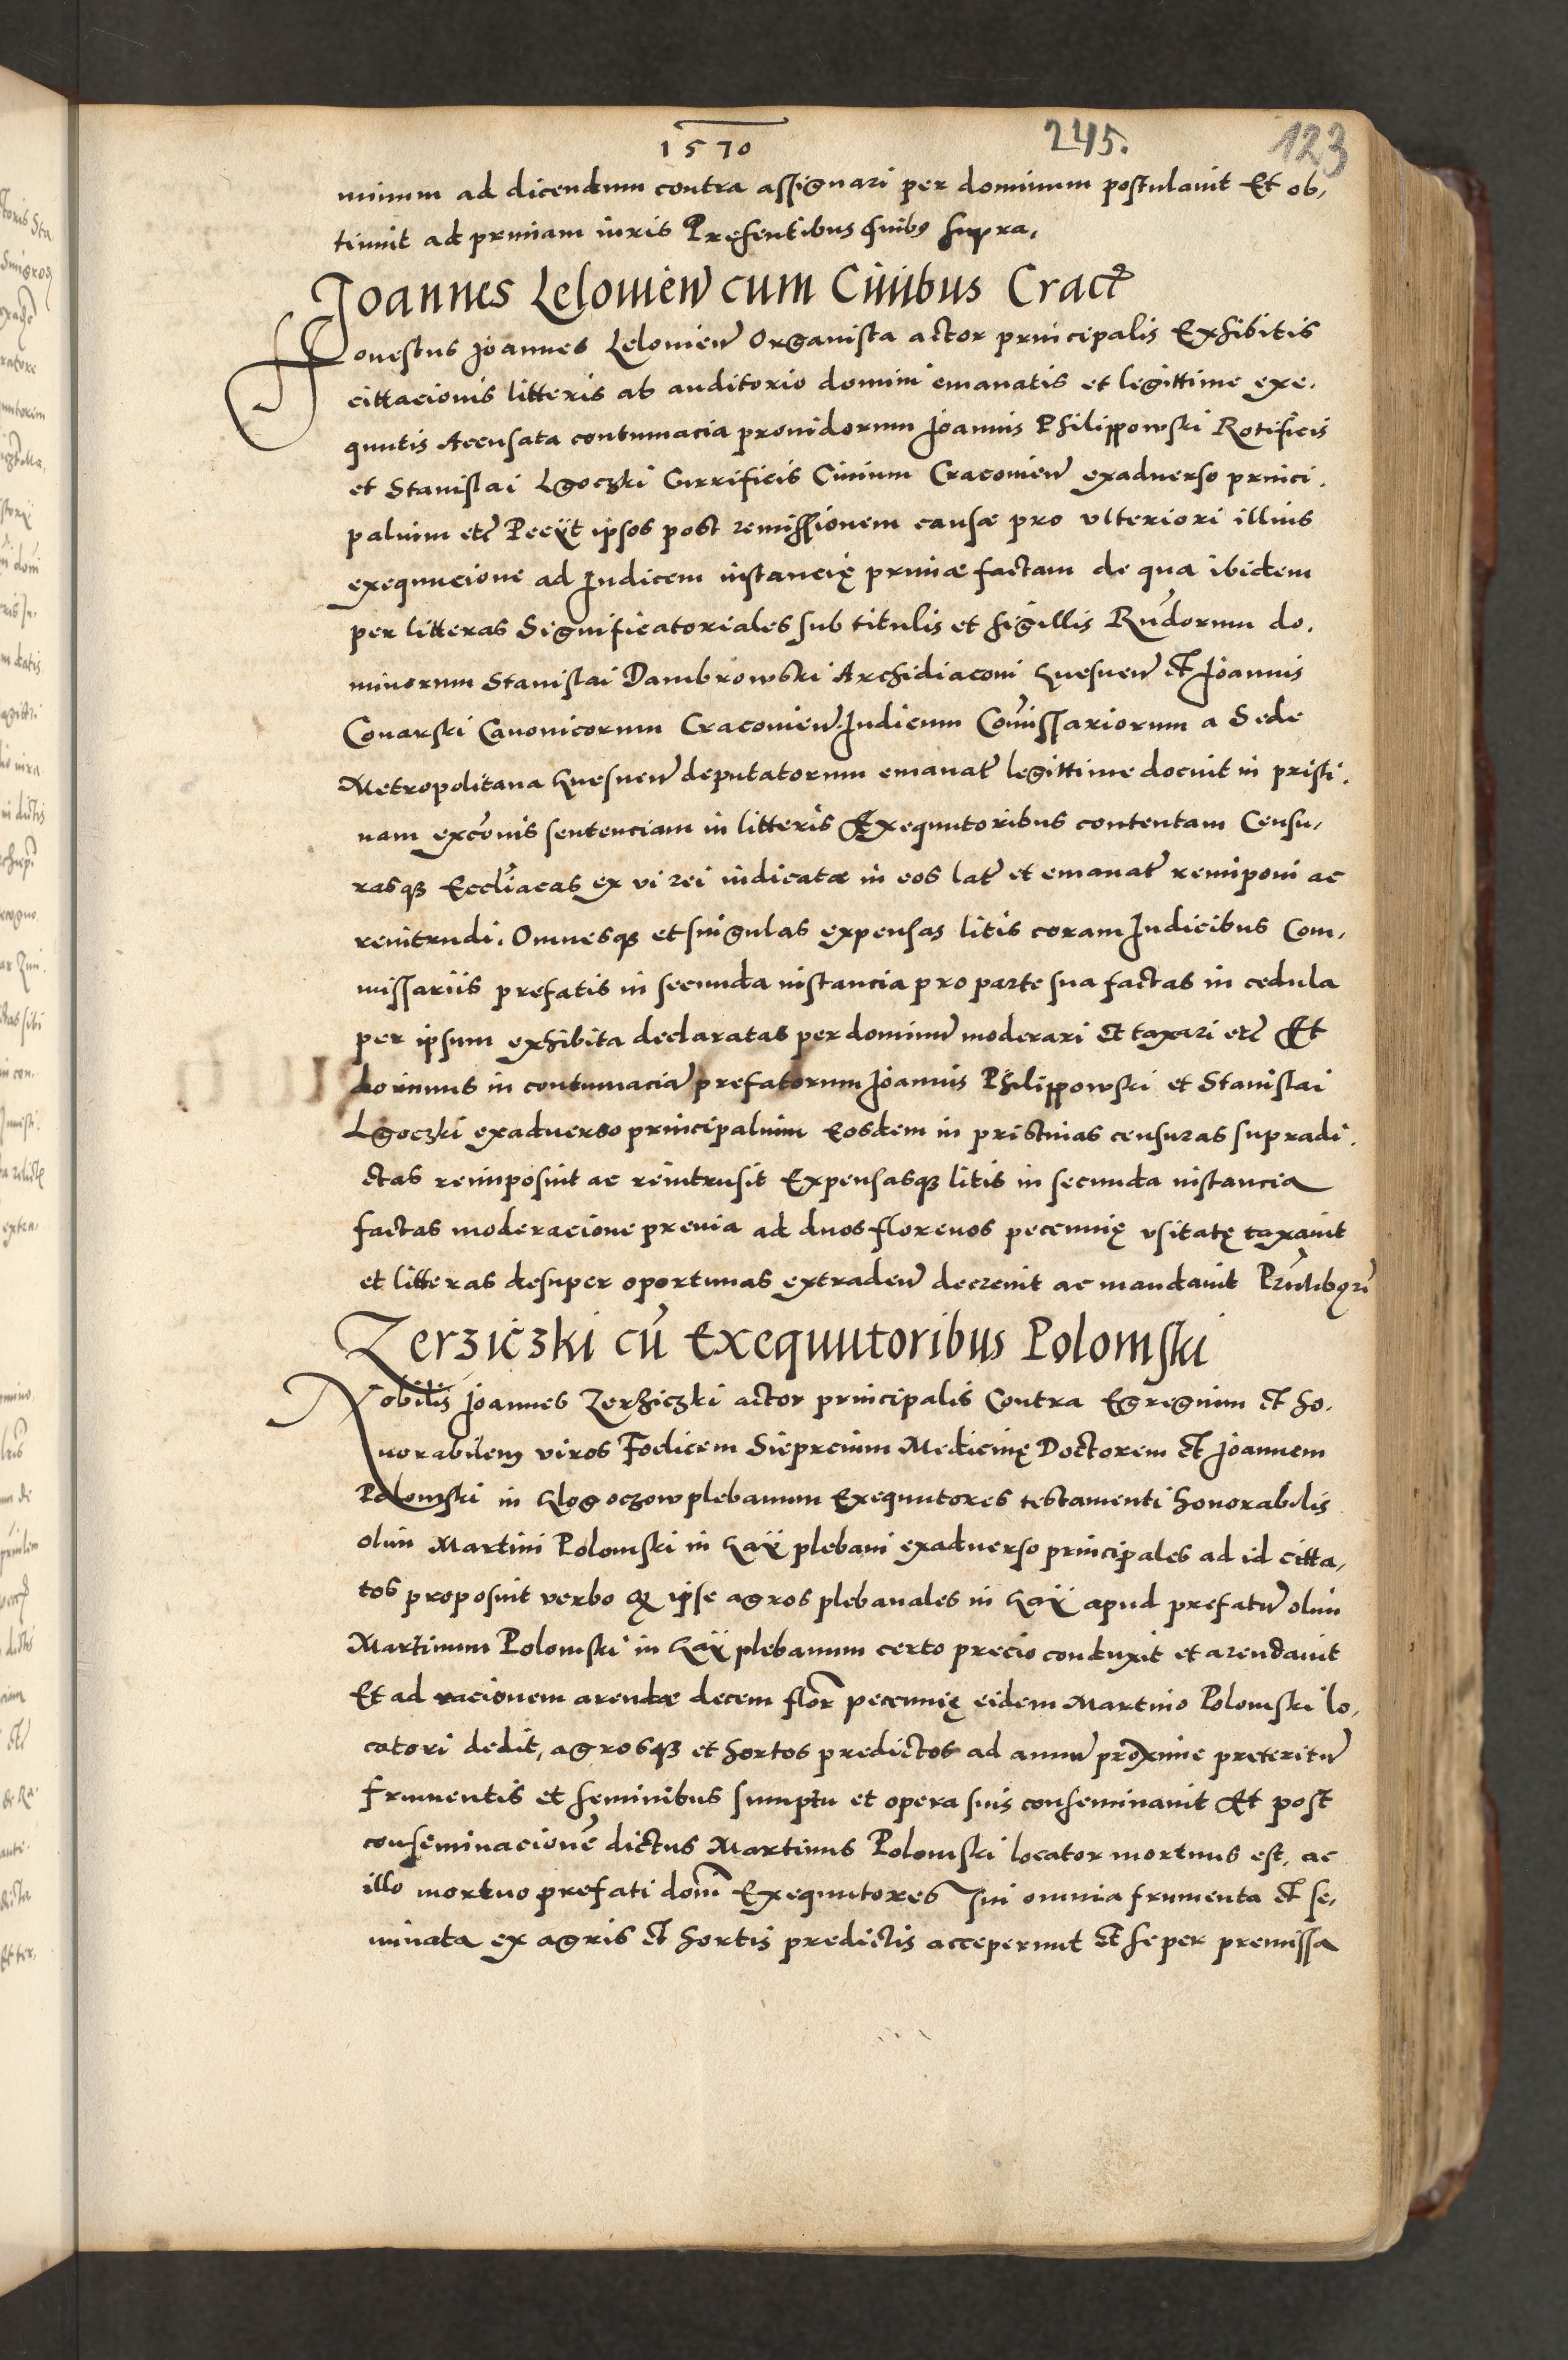 1570
245.
123
minum ad dicendum contra assignari per dominum postulauit Et ob,
tinuit ad primam iuris Presentibus quibus supra.
Joannes Lelouien̄ cum Ciuibus Crac̄
Honestus Joannes Lelouien̄ Organista actor principalis Exhibitis
cittacionis litteris ab auditorio domini emanatis et legittime exe.
quutis Accusata contumacia prouidorum Joannis Philippowski Rotificis
et Stanislai Lgoczki Currificis Ciuium Cracouien̄ exaduerso princi.
palium etc̄ Peeÿt ipsos post remissionem causæ pro vlteriori illius
exequucione ad Judicem instancię primæ factam de qua ibidem
per litteras Significatoriales sub titulis et sigillis Rn̄dorum do.
minorum Stanislai Dambrowski Archidiaconi Gnesnen̄ et Joannis
Conarski Canonicorum Cracouien̄ Judicum Com̄issariorum a Sede
Metropolitana Gnesnen̄ deputatorum emanat̄ legittime docuit in pristi.
nam excōnis sentenciam in litteris Exequutoribus contentam Censu,
rasqꝫ Eccl̄iacas ex vi rei iudicatæ in eos lat̄ et emanat̄ reimponi ac
reintrudi. Omnesqꝫ et singulas expensas litis coram Judicibus Com,
missariis prefatis in secunda instancia pro parte sua factas in cedula
per ipsum exhibita declaratas per dominum̄ moderari et taxari etc̄ Et
dominus in contumaciam̄ prefatorum Joannis Philippowski et Stanislai
Lgoczki exaduerso principalium Eosdem in pristinas censuras supradi.
ctas reimposuit ac reintrusit Expensasqꝫ litis in secunda instancia
factas moderacione preuia ad duos florenos pecunnię vsitatę taxauit
et litteras desuper oportunas extraden̄ decreuit ac mandauit Pn̄tibq;
Zerziczki cū Exequutoribus Polomski
Nobilis Joannes Zerziczki actor principalis Contra Egregium et ho.
norabilem viros Foelicem Sieprcium Medicinę Doctorem et Joannem
Polomski in Glogoczow plebanum Exequutores testamenti honorabilis
olim Martini Polomski in Gaÿ plebani exaduerso principales ad id citta,
tos proposuit verbo ꝙ ipse agros plebanales in Gaÿ apud prefatū olim
Martinum Polomski in Gaÿ plebanum certo precio conduxit et arendauit
Et ad racionem arendæ decem flor̄ pecunnię eidem Martino Polomski lo,
catori dedit, agrosqꝫ et hortos predictos ad annū proxime preteritū
frumentis et seminibus sumptu et opera suis conseminauit Et post
conseminacionē dictus Martinus Polomski locator mortuus est, ac
illo mortuo prefati dom̄ Exequutores sui omnia frumenta et se,
minata ex agris et hortis predictis acceperunt et se per premissa